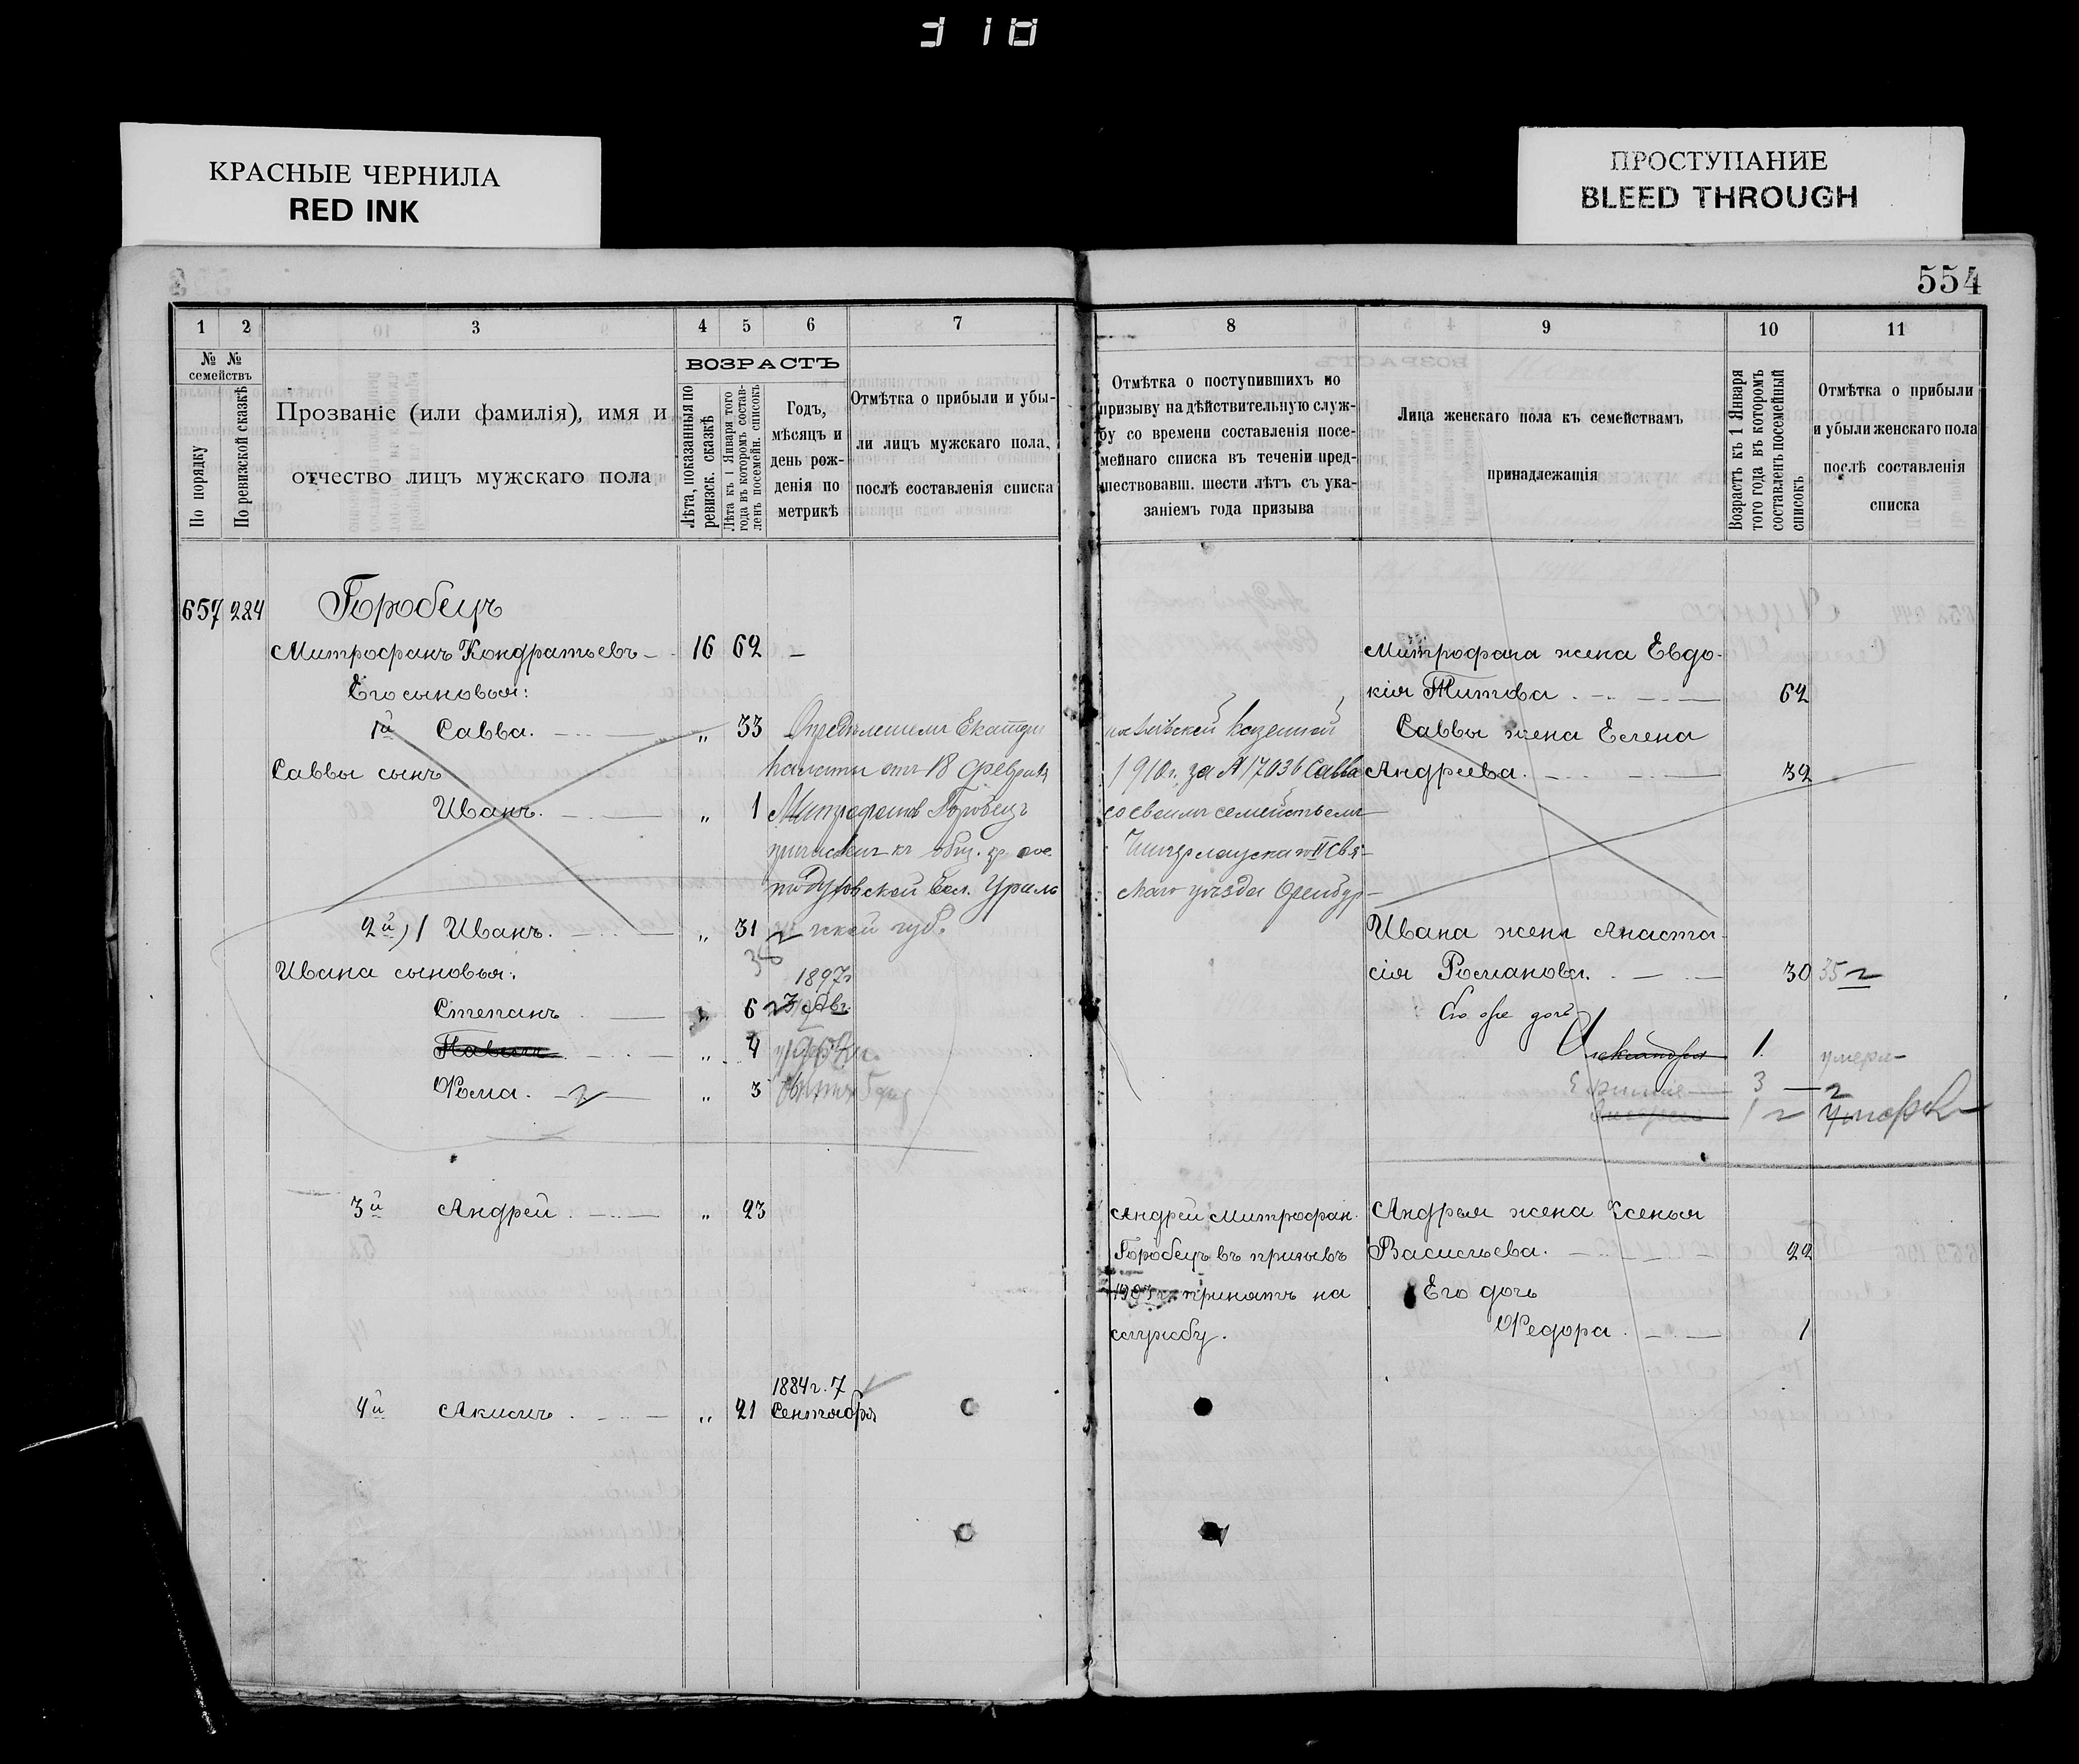 318
КРАСНЫЕ ЧЕРНИЛА
RED INK
ПРОСТУПАНИЕ
BLEED THROUGH
554
1 2 3 4 5 6 7
№ № семействъ
По порядку
По ревизской сказкѣ
Прозваніе (или фамилія), имя и
отчество лицъ мужскаго пола
ВОЗРАСТЪ
Лѣта, показанныя по
ревизск. сказкѣ
Лѣта къ 1 Января того
года въ которомъ состав-
ленъ посемейн. списокъ
Годъ,
мѣсяцъ и
день рож-
денія по
метрикѣ
Отмѣтка о прибыли и убы-
ли лицъ мужскаго пола,
послѣ составленія списка
8 9 10 11
Отмѣтка о поступившихъ по
призыву на дѣйствительную служ-
бу со времени составленія посе-
мейнаго списка въ теченіи пред-
шествовавш. шести лѣтъ съ ука-
заніемъ года призыва
Лица женскаго пола къ семействамъ
принадлежащія
Возрастъ къ 1 Января
того года въ которомъ
составленъ посемейный
списокъ
Отмѣтка о прибыли
и убыли женскаго пола
послѣ составленія
списка
657 224 Горобецъ
Митрофанъ Кондратьевъ 16 62
Его сыновья:
1й Савва. " 33
Саввы сынъ
Иванъ. " 1
Опредѣленіемъ Екатери
нославской Казенной
палаты отъ 18 февраля
1910 г. за № 17036 Савва
Митрофановъ Горобецъ
со своимъ семействомъ
2й) 1 Иванъ. " 31
ской губ.
36
Ивана сыновья:
1897г
Степанъ " 6 23 Авг.
Павелъ " 4
Ѳома. " 3
3й Андрей " 23
1884 г. 7
4й Акимъ " 21 Сентября
уѣзда Оренбур-
Андрей Митрофан.
Горобецъ въ призывъ
принятъ на
службу.
Митрофана жена Евдо-
кія Титова 62
Саввы жена Елена
Андреева. 32
Ивана жена Анаста-
сія Романова. 30 35
дочь
Александра 1. умерла
3
1
Андрея жена Ксенья
Васильева. 22
Его дочь
Ѳедора. 1